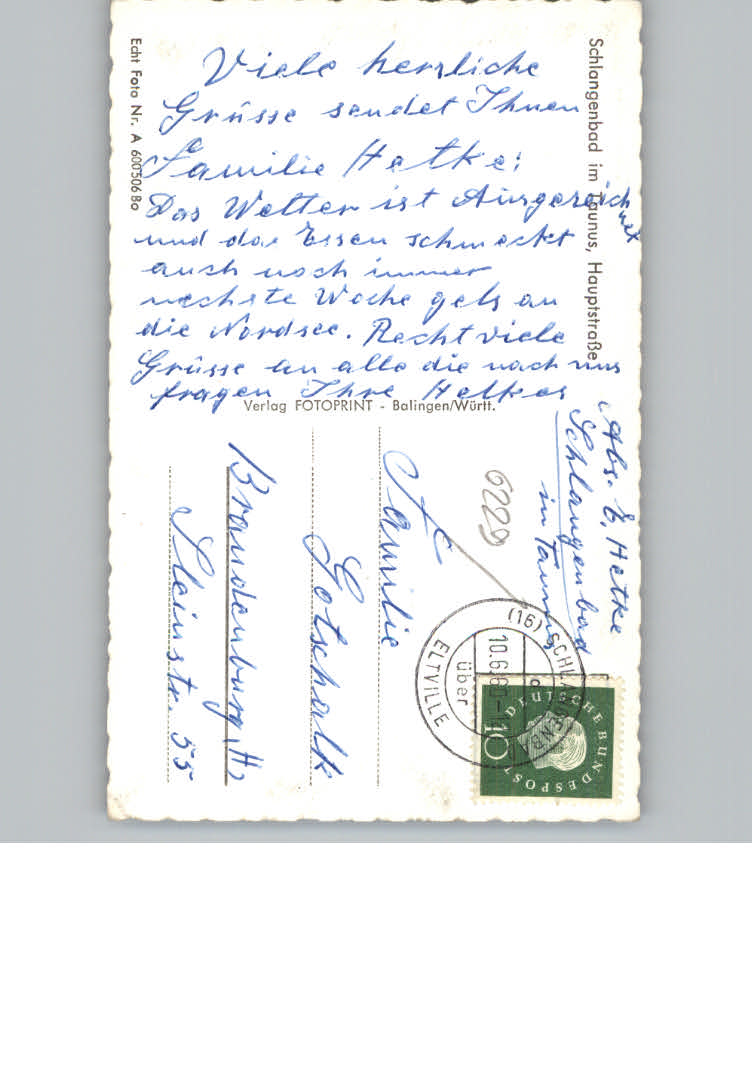 Schlangenbad im Taunus, Hauptstraße
Echt Foto Nr. A 6003068o
Viele herzliche
Grüsse sendet Ihnen
Familie Hetke!
Das Wetter ist Ausgezeichnet
und das Essen schmeckt
auch noch immer
nechste Woche gehs an
die Nordsee. Recht viele
Grüsse an alle die nach uns
fragen Ihre Hetkes
Verlag FOTOPRINT - Balingen/Württ.
Abs. E. Hetke
Schlangenbad
in Taunus
6229
(16) SCHLANGENB
über
ELTVILLE
10.6.60-1
DEUTSCHE BUNDESPOST
10
Familie
Gotschalk
Brandenburg (H)
Steinstr. 55